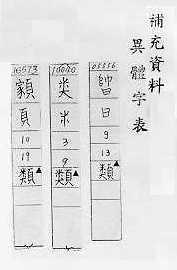 補充資料
異體字表
05556
日
9
13
類▲
10040
类
米
3
9
類▲
10573
頁
10
19
類▲